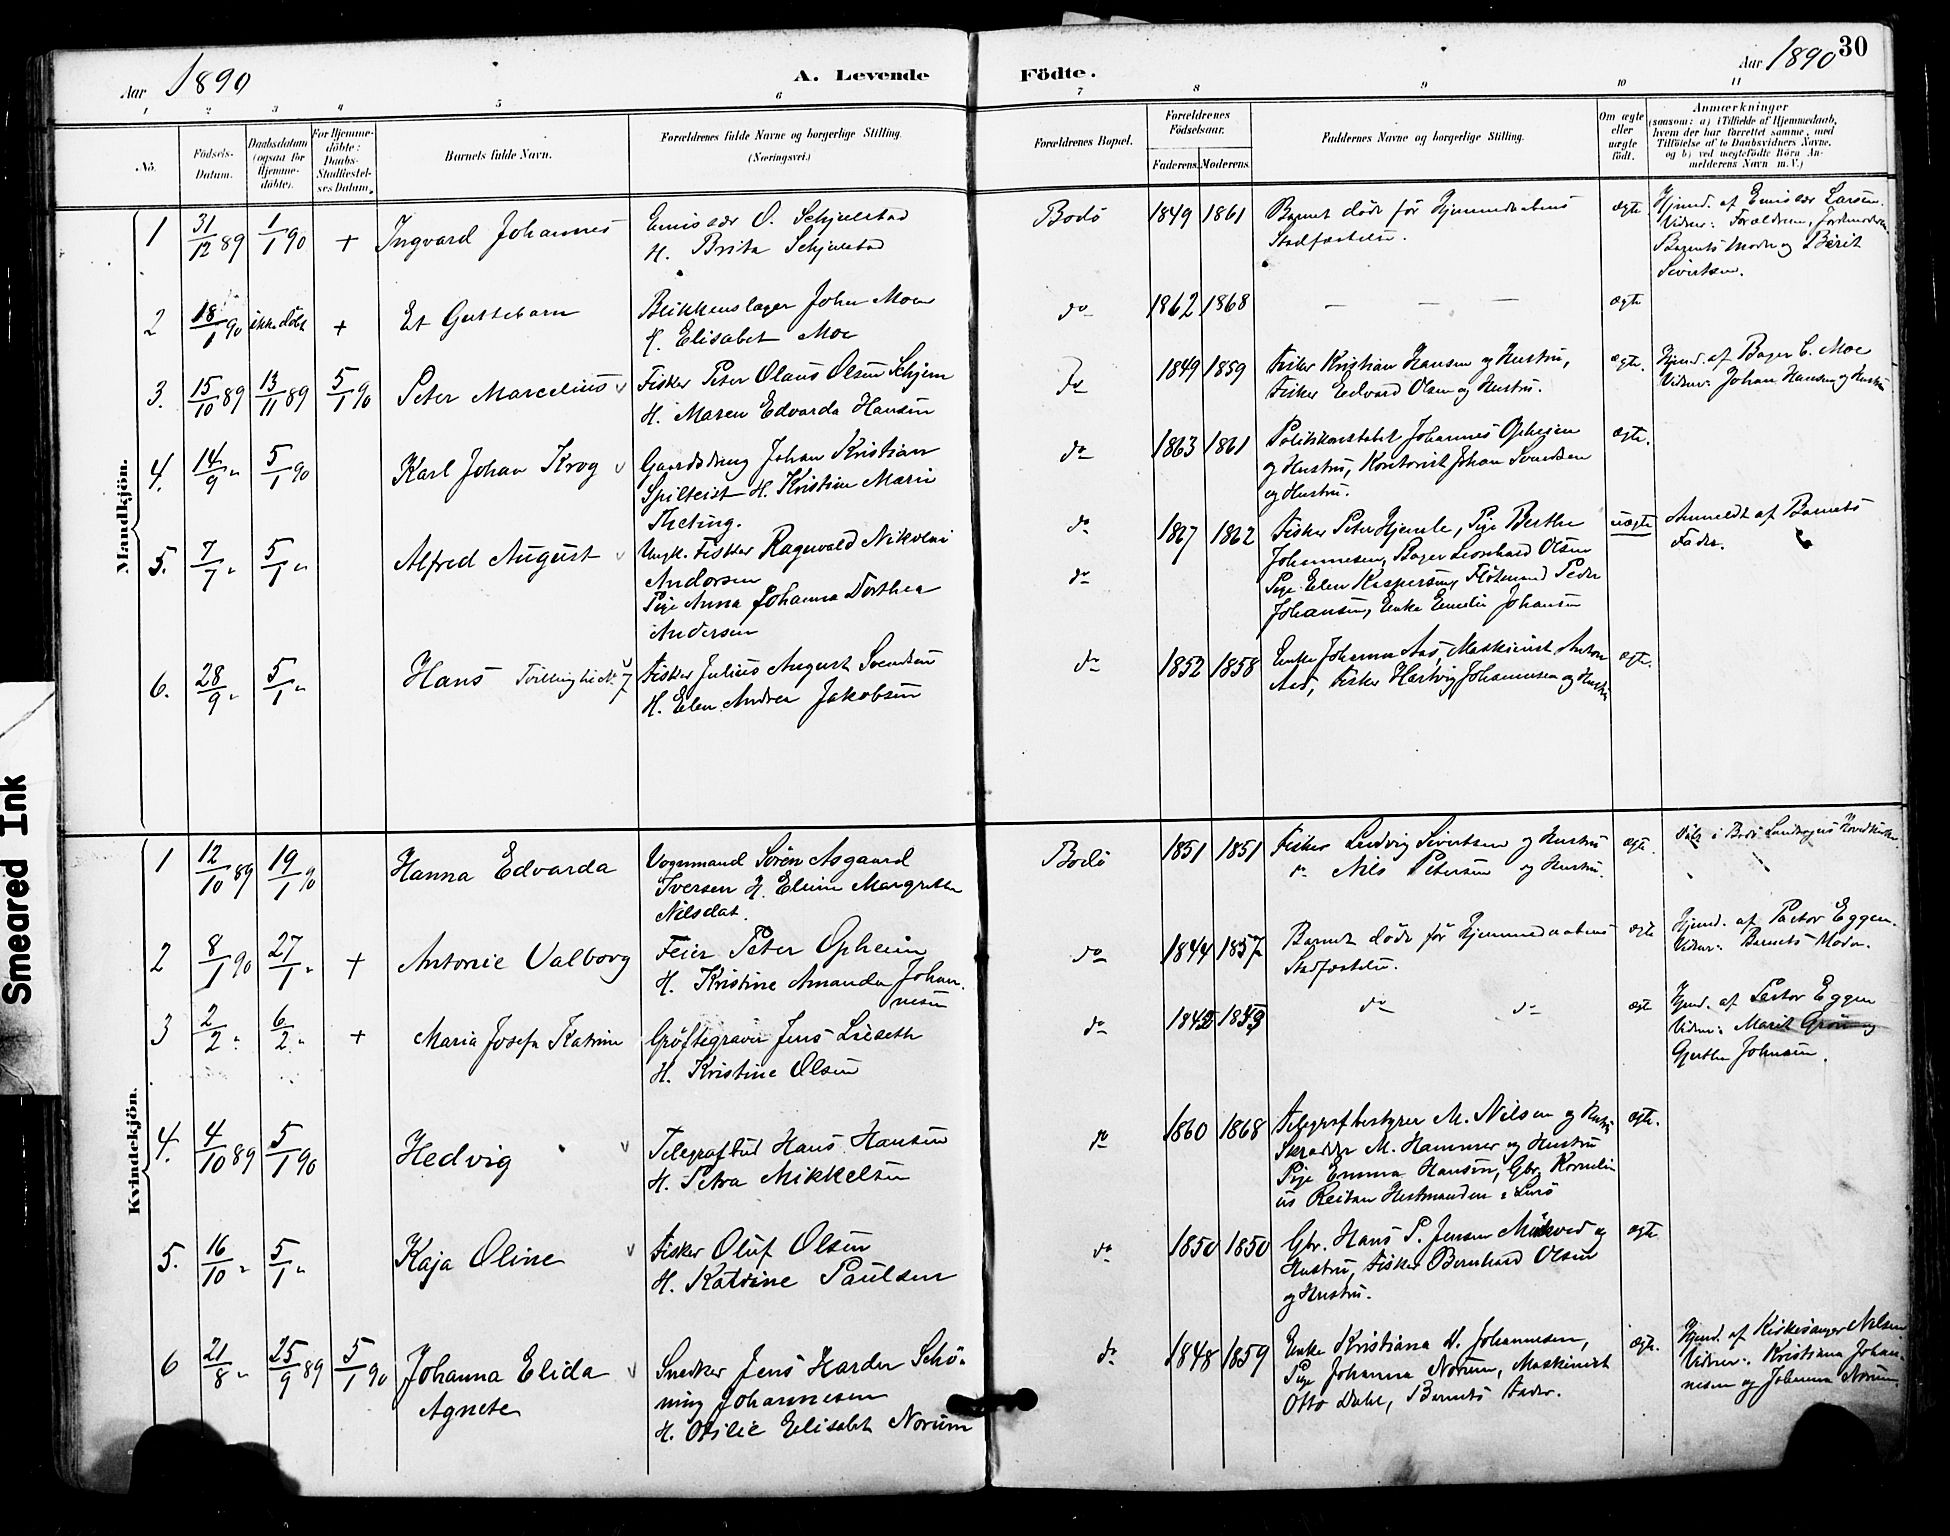 Aar 1890
A. Levende Födte.
Aar 1890 30
1 2 3 4 5 6 7 8 9 10 11
No.
Födsels-Datum.
Daabsdatum (ogsaa för Hjemme-döbte).
For Hjemme-döbte: Daabs-Stadfæstel-ses Datum.
Barnets fulde Navn.
Forældrenes fulde Navne og borgerlige Stilling. (Næringsvei.)
Forældrenes Bopæl.
Forældrenes Födselsaar.
Faderens. Moderens.
Faddernes Navne og borgerlige Stilling.
Om ægte eller uægte födt.
Anmærkninger
(saasom: a) i Tilfælde af Hjemmedaab, hvem der har forrettet samme, med Tilföielse af to Daabsvidners Navne, og b) ved uægtefödte Börn An-melderens Navn m. V.)
Mandkjön.
1 31/12 89 1/1 90 + Ingvard Johannes
Emissær O. Schjelstad
H. Brita Schjelstad
Bodö 1849 1861
Barnet döde för Hjemmedaabens
Stadfæstelse.
ægte
Hjemd. af Emissær Larsen.
Vidner: Forældrene, Jordmoderen
Barnets Moder og Berit
Sivertsen.
2 18/1 90 ikke döbt + Et Guttebarn
Blikkenslager John Moe
H. Elisabet Moe
do 1862 1868 — — — ægte
3. 15/10 89 13/11 89 5/1 90 Peter Marcelius
Fisker Peter Olaus Olsen Schjem
H. Maren Edvarda Hansen
do 1849 1859
Fisker Kristian Hansen og Hustru,
Fisker Edvard Olsen og Hustru.
ægte.
Hjemd. af Bager C. Moe
Vidner: Johan Hansen og Hustru
4. 14/9 " 5/1 90 Karl Johan Krog
Gaardsdreng Johan Kristian
H. Kristine Marie
do 1863 1861
Politikonstabel Johannes Opheim
og Hustru, Kontorist Johan Svendsen
og Hustru.
ægte.
5. 7/7 " 5/1 " Alfred August
Ungk. Fisker Ragnvald Nikolai
Andersen
Pige Anna Johanna Dorthea
Andersen
do
do
1867 1862
Fisker Peter Hjemle, Pige Berthe
Johannesen, Bager Leonhard Olsen
Pige Elen Kaspersen, Flötmand Peder
Johansen, Enke Emelie Johansen
uægte
Anmeldt af Barnets
Fader.
6. 28/9 " 5/1 " Hans Tvilling til No 7
Fisker Julius August Svendsen
H. Elen Andrea Jakobsen
do 1852 1858
Enke Johanna Aas, Maskinist Anton
Aas, Fisker Hartvig Johannesen og Hustru
ægte.
Kvindekjön.
1 12/10 89 19/1 90 Hanna Edvarda
Vognmand Sören Asgaard
Iversen H. Eline Margrethe
Nilsdat.
Bodö 1851 1851
Fisker Ludvig Sivertsen og Hustru
do Nils Petersen og Hustru.
ægte.
Döbt i Bodö Landsogns Hovedkirke
2 8/1 90 27/1 " + Antonie Valborg
Feier Peter Opheim
H. Kristine Amanda Johan-
nesen
do 1844 1857
Barnet döde för Hjemmedaabens
Stadfæstelse.
ægte
Hjemd. af Pastor Eggen.
Vidner: Barnets Moder.
3 2/2 " 6/2 " + Maria Josefa Katrine
Gröftegraver Jens Lilleseth
H. Kristine Olsen
do 1842 1853 do do ægte
Hjemd. af Pastor Eggen
Vidner: Marit Grön og
Gjerthe Johnsen.
4. 4/10 89 5/1 90 Hedvig
Telegrafbud Hans Hansen
H. Petra Mikkelsen
do 1860 1868
Telegrafbestyrer M. Nilsen og Hustru
Skrædder M. Hammer og Hustru
Pige Emma Hansen, Gbr. Korneli
us Reitan Hestmanden i Lurö
ægte.
5. 16/10 " 5/1 " Kaja Oline
Fisker Oluf Olsen
H. Katrine Paulsen
do 1850 1850
Gbr. Hans P. Jensen Mörkved og
Hustru, Fisker Bernhard Olsen
og Hustru.
ægte
6 21/8 " 25/9 89 5/1 90 Johanna Elida
Agnete
Snedker Jens Harder Schö-
ning Johannesen
H. Otilie Elisabet Norum
do 1848 1859
Enke Kristiana K. Johannesen,
Pige Johanna Norum, Maskinist
Otto Dahl, Barnets Fader.
ægte.
Hjemd. af Kirkesanger Nilsen
Vidner: Kristiana Johan-
nesen og Johanna Norum.
Smeared Ink